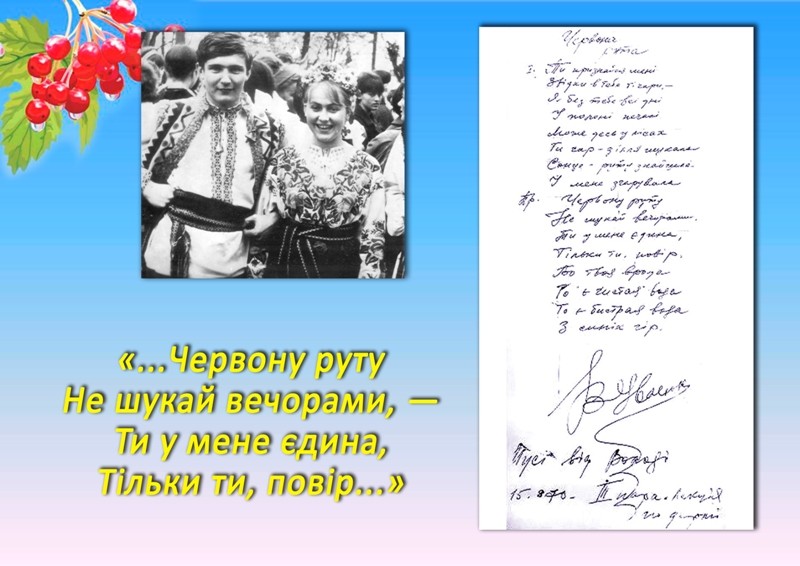 «...Червону руту
Не шукай вечорами, —
Ти у мене єдина,
Тільки ти, повір...»
Червона
рута
I. Ти признайся мені
Звідки в тебе ті чари,—
Я без тебе всі дні
У полоні печалі
Може десь у лісах
Ти чар-зілля шукала
Сонце-руту знайшла
І мене зчарувала
Пр. Червону руту
Не шукай вечорами.
Ти у мене єдина,
Тільки ти. повір.
Бо твоя врода
То є чистая вода
То є бистрая вода
З синіх гір.
Тусі від Володі